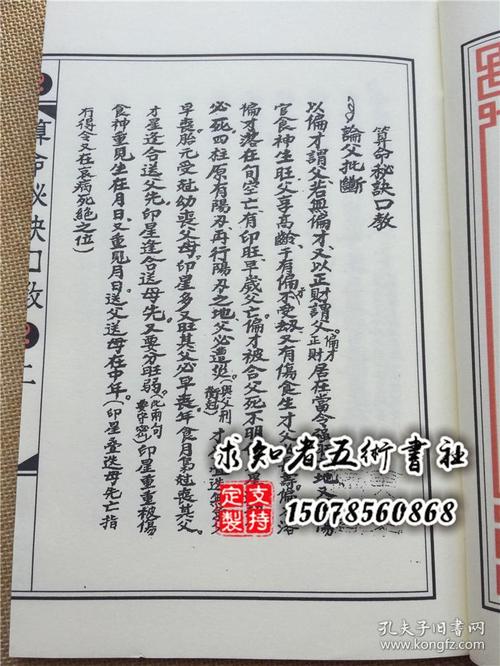 算命秘訣口教
論父批斷
以偏才謂父若無偏才又以正財謂父偏才正財居在當令
官食神生旺父享高齡干有偏不受刼又有傷食生才父
偏才落在旬空亡有印旺早歲父亡偏才被合父死不明
必死四柱原有陽刃再行陽刃之地父必遭災(與父刑衝尅)才
早喪胎元受尅幼喪父母印星多又旺其父必早喪年食月寫尅喪其父
才星逢合送父先印星逢合送母先又要分旺弱(此兩句要守密)印星重重被傷
食神重見生在月日又重見月日送父送母在中年(印星叠迭母先亡指
有得令又在衰病死絕之位)
算命秘訣口教
二
求知者五術書社
支持定製
15078560868
孔夫子旧書网
www.kongfz.com